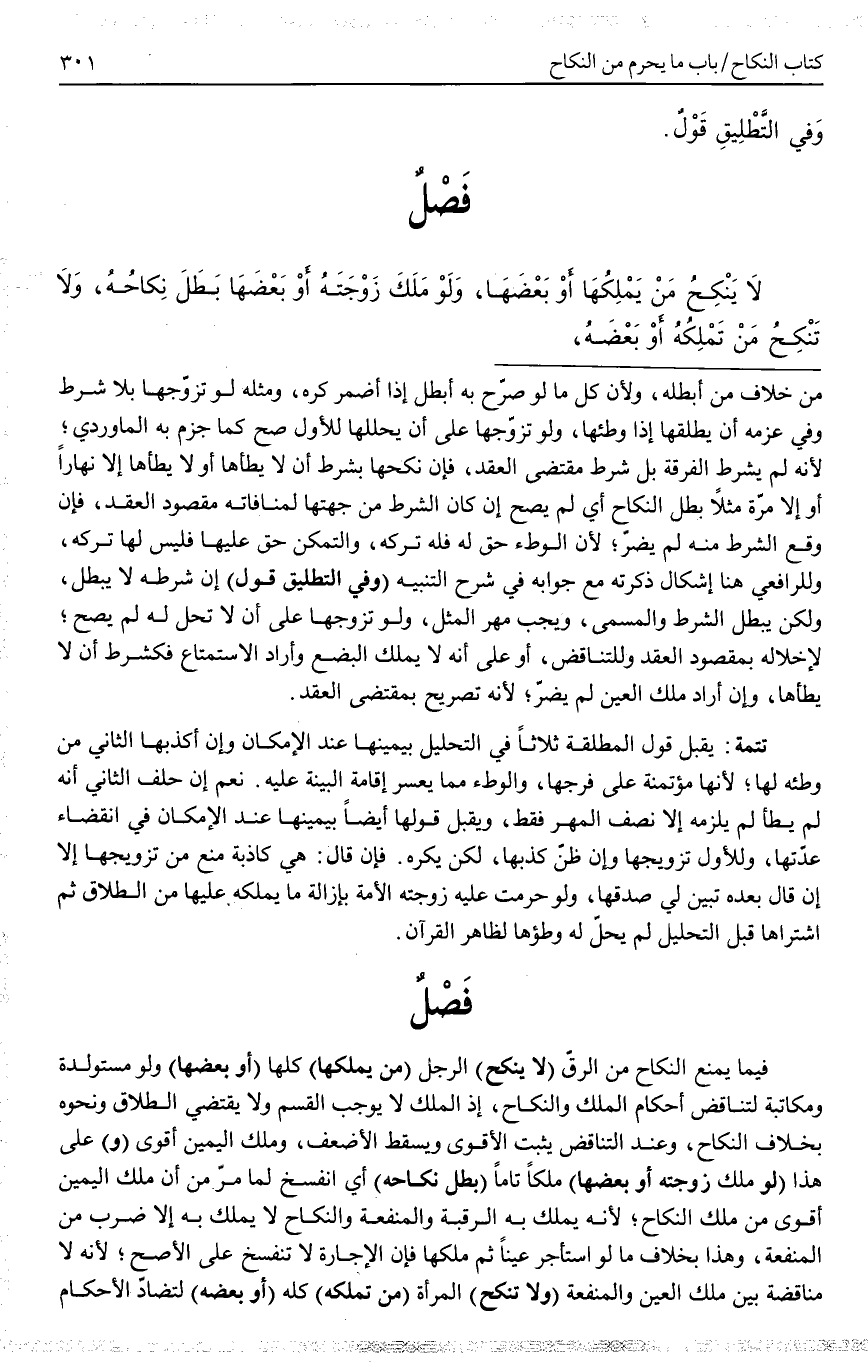 كتاب النكاح/ باب ما يحرم من النكاح ٣٠١
وَفي التَّطْلِيقِ قَوْلٌ.
فَصْلٌ
لَا يَنْكِحُ مَنْ يَمْلِكُهَا أَوْ بَعْضَهَا، وَلَوْ مَلَكَ زَوْجَتَهُ أَوْ بَعْضَهَا بَطَلَ نِكَاحُهُ، وَلَا
تَنْكِحُ مَنْ تَمْلِكُهُ أَوْ بَعْضَهُ،
من خلاف من أبطله، ولأن كل ما لو صرّح به أبطل إذا أضمر كره، ومثله لو تزوّجها بلا شرط
وفي عزمه أن يطلقها إذا وطئها، ولو تزوّجها على أن يحللها للأول صح كما جزم به الماوردي؛
لأنه لم يشرط الفرقة بل شرط مقتضى العقد، فإن نكحها بشرط أن لا يطأها أو لا يطأها إلا نهاراً
أو إلا مرّة مثلاً بطل النكاح أي لم يصح إن كان الشرط من جهتها لمنافاته مقصود العقد، فإن
وقع الشرط منه لم يضرّ؛ لأن الوطء حق له فله تركه، والتمكن حق عليها فليس لها تركه،
وللرافعي هنا إشكال ذكرته مع جوابه في شرح التنبيه (وفي التطليق قول) إن شرطه لا يبطل،
ولكن يبطل الشرط والمسمى، ويجب مهر المثل، ولو تزوجها على أن لا تحل له لم يصح؛
لإخلاله بمقصود العقد وللتناقض، أو على أنه لا يملك البضع وأراد الاستمتاع فكشرط أن لا
يطأها، وإن أراد ملك العين لم يضرّ؛ لأنه تصريح بمقتضى العقد.
تتمة: يقبل قول المطلقة ثلاثاً في التحليل بيمينها عند الإمكان وإن أكذبها الثاني من
وطئه لها؛ لأنها مؤتمنة على فرجها، والوطء مما يعسر إقامة البينة عليه. نعم إن حلف الثاني أنه
لم يطأ لم يلزمه إلا نصف المهر فقط، ويقبل قولها أيضاً بيمينها عند الإمكان في انقضاء
عدّتها، وللأول تزويجها وإن ظنّ كذبها، لكن يكره. فإن قال: هي كاذبة منع من تزويجها إلا
إن قال بعده تبين لي صدقها، ولو حرمت عليه زوجته الأمة بإزالة ما يملكه عليها من الطلاق ثم
اشتراها قبل التحليل لم يحلّ له وطؤها لظاهر القرآن.
فَصْلٌ
فيما يمنع النكاح من الرقّ (لا ينكح) الرجل (من يملكها) كلها (أو بعضها) ولو مستولدة
ومكاتبة لتناقض أحكام الملك والنكاح، إذ الملك لا يوجب القسم ولا يقتضي الطلاق ونحوه
بخلاف النكاح، وعند التناقض يثبت الأقوى ويسقط الأضعف، وملك اليمين أقوى (و) على
هذا (لو ملك زوجته أو بعضها) ملكاً تاماً (بطل نكاحه) أي انفسخ لما مرّ من أن ملك اليمين
أقوى من ملك النكاح؛ لأنه يملك به الرقبة والمنفعة والنكاح لا يملك به إلا ضرب من
المنفعة، وهذا بخلاف ما لو استأجر عيناً ثم ملكها فإن الإجارة لا تنفسخ على الأصح؛ لأنه لا
مناقضة بين ملك العين والمنفعة (ولا تنكح) المرأة (من تملكه) كله (أو بعضه) لتضادّ الأحكام